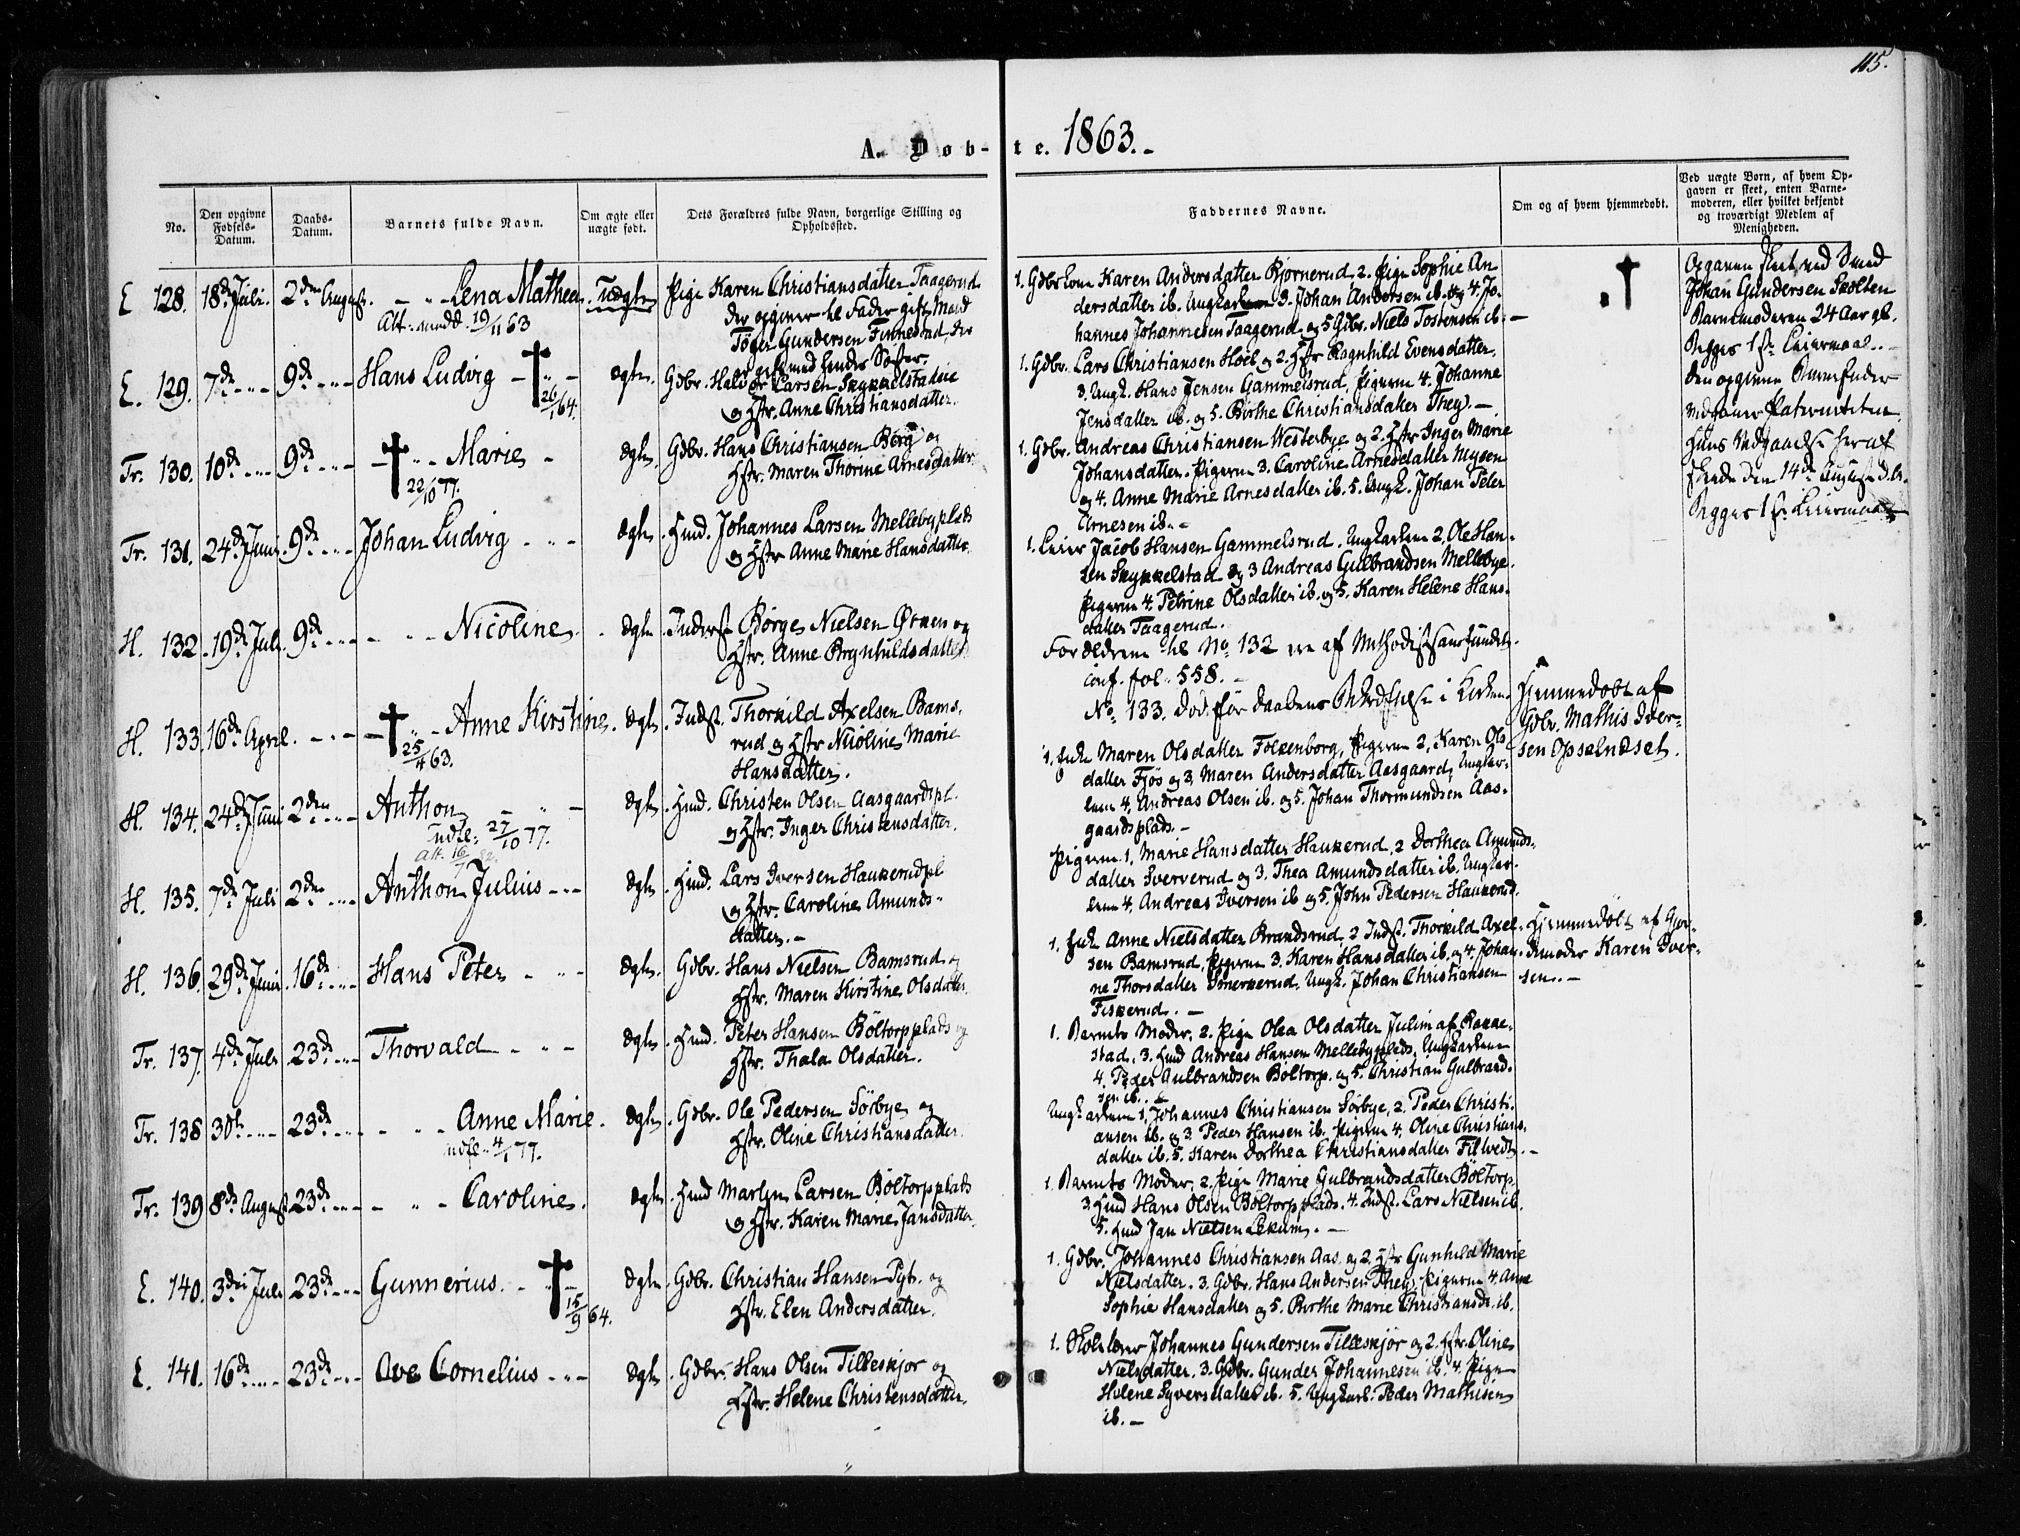 115.
A. Døb- te. 1863.-
No.
Den opgivne Fødsels-Datum.
Daabs-Datum.
Barnets fulde Navn.
Om ægte eller uægte født.
Dets Forældres fulde Navn, borgerlige Stilling og Opholdssted.
Faddernes Navne.
Om og af hvem hjemmedøbt.
Ved uægte Børn, af hvem Opgaven er skeet, enten Barnemoderen, eller hvilket bekjendt og troværdigt Medlem af Menigheden.
E. 128. 18de Juli. 2den August. - " - Lena Mathea. Uægte
Att. medd. 19/11 63
Pige Karen Christiansdatter Taagerud
der opgiver til Fader gift Mand
Tøger Gundersen Finnestad, der
er gift med hendes Søster.
1. Gdbr Kone Karen Andersdatter Bjørnerud, 2. Pige Sophie An
dersdatter ib. Ungkarl 3. Johan Andersen ib. og 4. Jo-
hannes Johannesen Taagerud og 5 Gdbr. Niels Tostensen ib. -
Opgaven skeet ved Smed
Johan Gundersen Skolten
Barnemoderen 24 Aar gl.
Begges 1ste Leiermaal. -
Den opgivne Barnefader
vedgaaer Paterniteten
Hans Vedgaaelse heraf
skede den 14de August d. A.
Begges 1ste Leiermaal
E. 129. 7de " - 9de " - Hans Ludvig - † " -
26/1 64.
Ægte. Gdbr. Halvor Larsen Skykkelstadeie
og Hstr. Anne Christiansdatter.
1. Gdbr. Lars Christiansen Hoel og 2. Hstr Ragnhild Evensdatter.
3. Ungk. Hans Jensen Gammelsrud, Pigerne 4. Johanne
Jensdatter ib. og 5. Birthe Christiansdatter They. -
Tr. 130. 10de " - 9de " - † " - Marie -
22/10 77.
Ægte. Gdbr. Hans Christiansen Berg og
Hstr. Maren Thorine Arnesdatter.
1. Gdbr. Andreas Christiansen Westerbye og 2. Hstr Inger Marie
Johansdatter. Pigerne 3. Caroline Arnesdatter Mysen
og 4. Anne Marie Arnesdatter ib. 5. Ungk. Johan Peter
Arnesen ib. -
Tr. 131. 24de Juni. 9de " - Johan Ludvig - " -
Ægte. Husd. Johannes Larsen Mellebyplads
og Hstr Anne Marie Hansdatter.
1. Leier Jacob Hansen Gammelsrud. Ungkarlene 2. Ole Han-
sen Skykkelstad og 3 Andreas Gulbrandsen Mellebye.
Pigerne 4. Petrine Olsdatter ib. og 5. Karen Helene Hans-
datter Taagerud.
H. 132. 19de Juli 9de " - - " - Nicoline.
Ægte. Inderst Børge Nielsen Ørnen og
Hstr. Anne Brynhildsdatter
Forældrene til No 132 ere af Methodistsamfundet.
conf. fol. 558. -
H. 133. 16de April. - " - † " - Anne Kirstine.
25/4 63.
Ægte. Indst. Thorkild Axelsen Bams-
rud og Hstr Nicoline Marie
Hansdatter.
No. 133. død før Daabens Bekræftelse i Kirken.
Hjemmedøbt af
Gdbr. Mathis Iver-
sen Opselndset.
H. 134. 24de Juni 2den " - Anthon - " -
udfl: 27/10 77.
Ægte. Husd. Christen Olsen Aasgaardspl.
og Hstr. Inger Christensdatter.
1. Enke Maren Olsdatter Folkenborg, Pigerne 2. Karen Ols
datter Fjøs og 3. Maren Andersdatter Aasgaard, Ungkar-
lene 4. Andreas Olsen ib. og 5. Johan Thormundsen Aas-
gaardsplads. -
H. 135. 7de Juli 2den " - Anthon Julius - " -
Ægte. Husd. Lars Iversen Haukerudpl
og Hstr. Caroline Amunds-
datter. -
Pigerne 1. Marie Hansdatter Haukerud, 2 Dorthea Amunds-
datter Sververud og 3. Thea Amundsdatter ib. Ungkar-
lene 4. Andreas Iversen ib og 5. John Pedersen Haukerud.
H. 136. 29de Juni. 16de " - Hans Peter - " -
Ægte. Gdbr. Hans Nielsen Bamsrud og
Hstr. Maren Kirstine Olsdatter
1. Enke Anne Nielsdatter Brandsrud, 2 Indst. Thorkild Axel-
sen Bamsrud, Pigerne 3. Karen Hansdatter ib. og 4. Johan-
ne Thorsdatter Smerkerud. Ungk. Johan Christiansen
Fiskerud. -
Hjemmedøbt af Gjor-
demoder Karen Iver-
sen. -
Tr. 137. 4de Juli 23de " - Thorvald - " -
Ægte. Husd. Peter Hansen Bøltorpplads og
Hstr. Thala Olsdatter.
1. Barnets Moder, 2. Pige Olea Olsdatter Julien af Rakke-
stad, 3. Husd Andreas Hansen Mellebyplads, Ungkarlene
4. Peder Gulbrandsen Bøltorp. og 5. Christian Gulbrand-
sen ib. -
Tr. 138 30te " - 23de " - - " - Anne Marie.
udfl. 4/1 77.
Ægte. Gdbr. Ole Pedersen Sørbye og
Hstr. Oline Christiansdatter.
Ungkarlene 1. Johannes Christiansen Sørbye, 2. Peder Christi-
ansen ib. og 3. Peder Hansen ib. Pigerne 4. Oline Christians-
datter ib. 5. Karen Dorthea Christiansdatter Filtvedt. -
Tr. 139 8de August 23de " - - " - Caroline.
Ægte. Husd Martin Larsen Bøltorpplads
og Hstr. Karen Marie Jansdatter.
1. Barnets Moder, 2. Pige Marie Gulbrandsdatter Bøltorp
3. Husd Hans Olsen Bøltorpplads. 4. Indst. Lars Nielsen ib.
5. Husd Jan Nielsen Lekum. -
E. 140. 3die Juli 23de " - Gunnerius. - † -
15/9 64.
Ægte. Gdbr. Christian Hansen Pyt. og
Hstr. Elen Andersdatter.
1. Gdbr. Johannes Christiansen Aas og 2. Hstr Gunhild Marie
Nielsdatter. 3. Gdbr. Hans Andersen They, Pigerne 4. Anne
Sophie Hansdatter og 5. Birthe Marie Christiansdr. ib.
E. 141. 16de " - 23de " - Ove Cornelius - " -
Ægte. Gdbr. Hans Olsen Tilleskjør og
Hstr. Helene Christensdatter.
1. Skolelærer Johannes Gundersen Tilleskjør og 2. Hstr. Oline
Nielsdatter. 3. Gdbr. Gunder Johannesen ib. 4. Pige
Helene Syversdatter ib. 5. Ungkarl. Peder Mathisen
ib. -